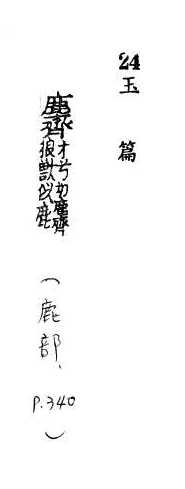 24
玉篇
麡才兮切麡
狼獸似鹿
（鹿部、P.340）